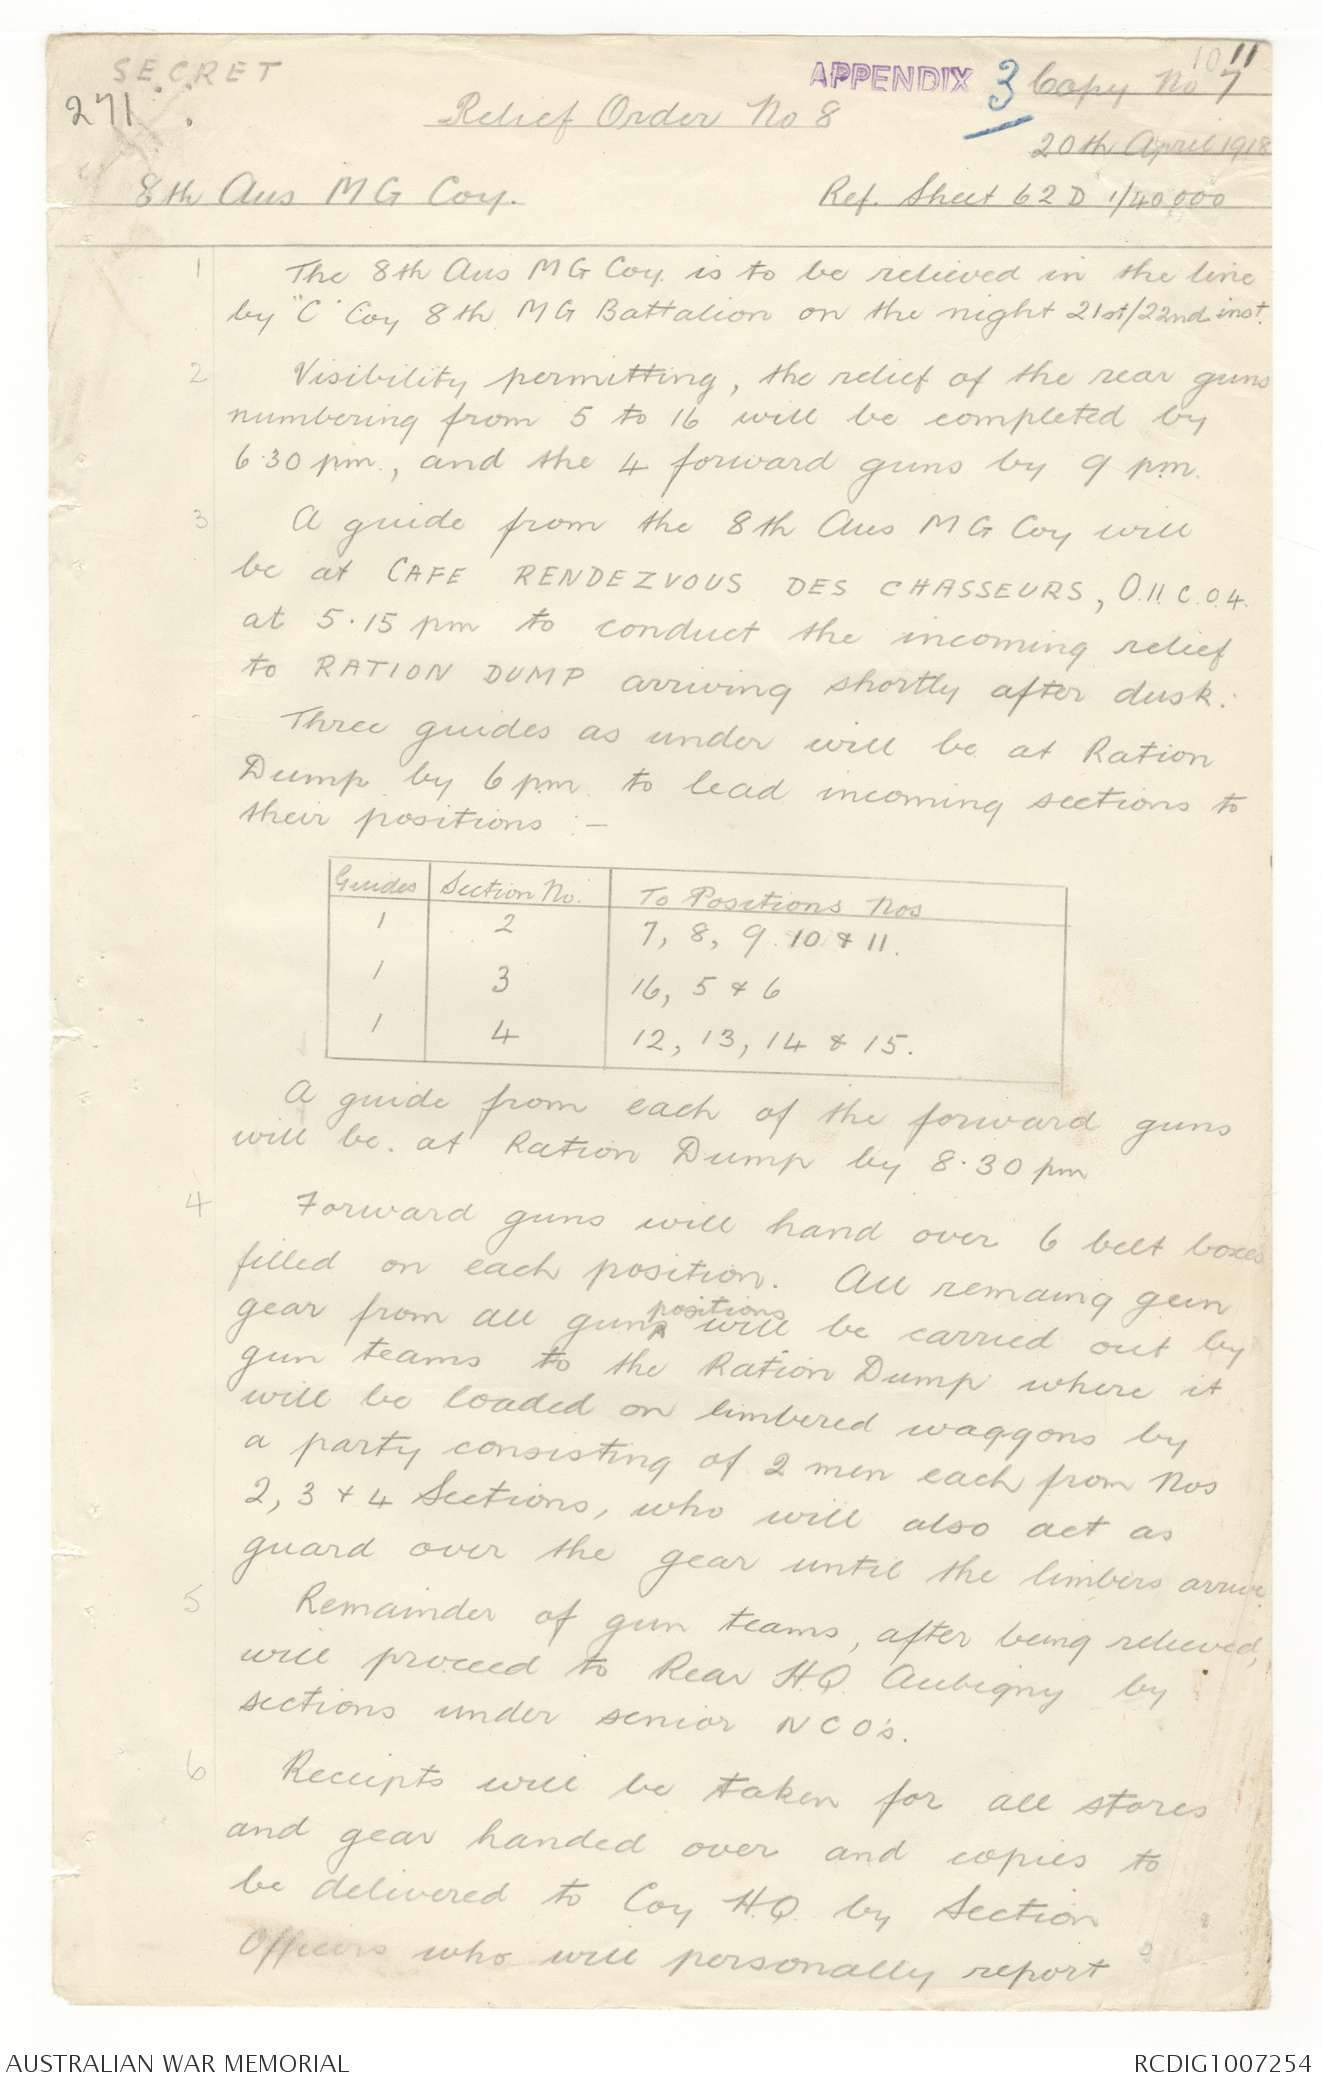 10 11
SECRET
APPENDIX 3 Copy No 7
271.
Relief Order No 8
20th April 1918
8th Aus MG Coy.
Ref. Sheet 62D 1/40,000
1 The 8th Aus MG Coy. is to be relieved in the line
by "C" Coy 8th MG Battalion on the night 21st/22nd inst.
2 Visibility permitting, the relief of the rear guns
numbering from 5 to 16 will be completed by
6.30 pm., and the 4 forward guns by 9 pm.
3 A guide from the 8th Aus MG Coy will
be at CAFE RENDEZVOUS DES CHASSEURS, O.11.C.0.4.
at 5.15 pm to conduct the incoming relief
to RATION DUMP arriving shortly after dusk.
Three guides as under will be at Ration
Dump by 6 pm. to lead incoming sections to
their positions :-
Guides Section No. To Positions Nos
1 2 7, 8, 9. 10 & 11.
1 3 16, 5 & 6
1 4 12, 13, 14 & 15.
A guide from each of the forward guns
will be. at Ration Dump by 8.30 pm
4 Forward guns will hand over 6 belt boxes
filled on each position. All remaing gun
gear from all guns positions will be carried out by
gun teams to the Ration Dump where it
will be loaded on limbered waggons by
a party consisting of 2 men each from Nos
2, 3 & 4 Sections, who will also act as
guard over the gear until the limbers arrive.
5 Remainder of gun teams, after being relieved,
will proceed to Rear H.Q. Aubigny by
sections under senior NCO's.
6 Receipts will be taken for all stores
and gear handed over and copies to
be delivered to Coy H.Q. by Section
Officers who will personally report
AUSTRALIAN WAR MEMORIAL
RCDIG1007254